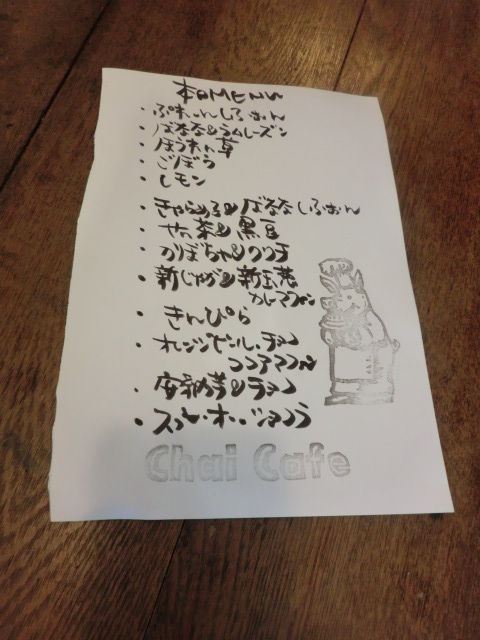 本日MENU
・ぷれーんしふぉん
・ばなな&ラムレーズン
・ほうれん草
・ごぼう
・レモン
・きゃらめる&ばななしふぉん
・せん茶&黒豆
・かぼちゃ&クルミ
・新じゃが&新玉葱
カレーマフィン
・きんぴら
・オレンジピール・チョコ
ココアマフィン
・安納芋&ラテ
・スイートポテト
Chai Cafe